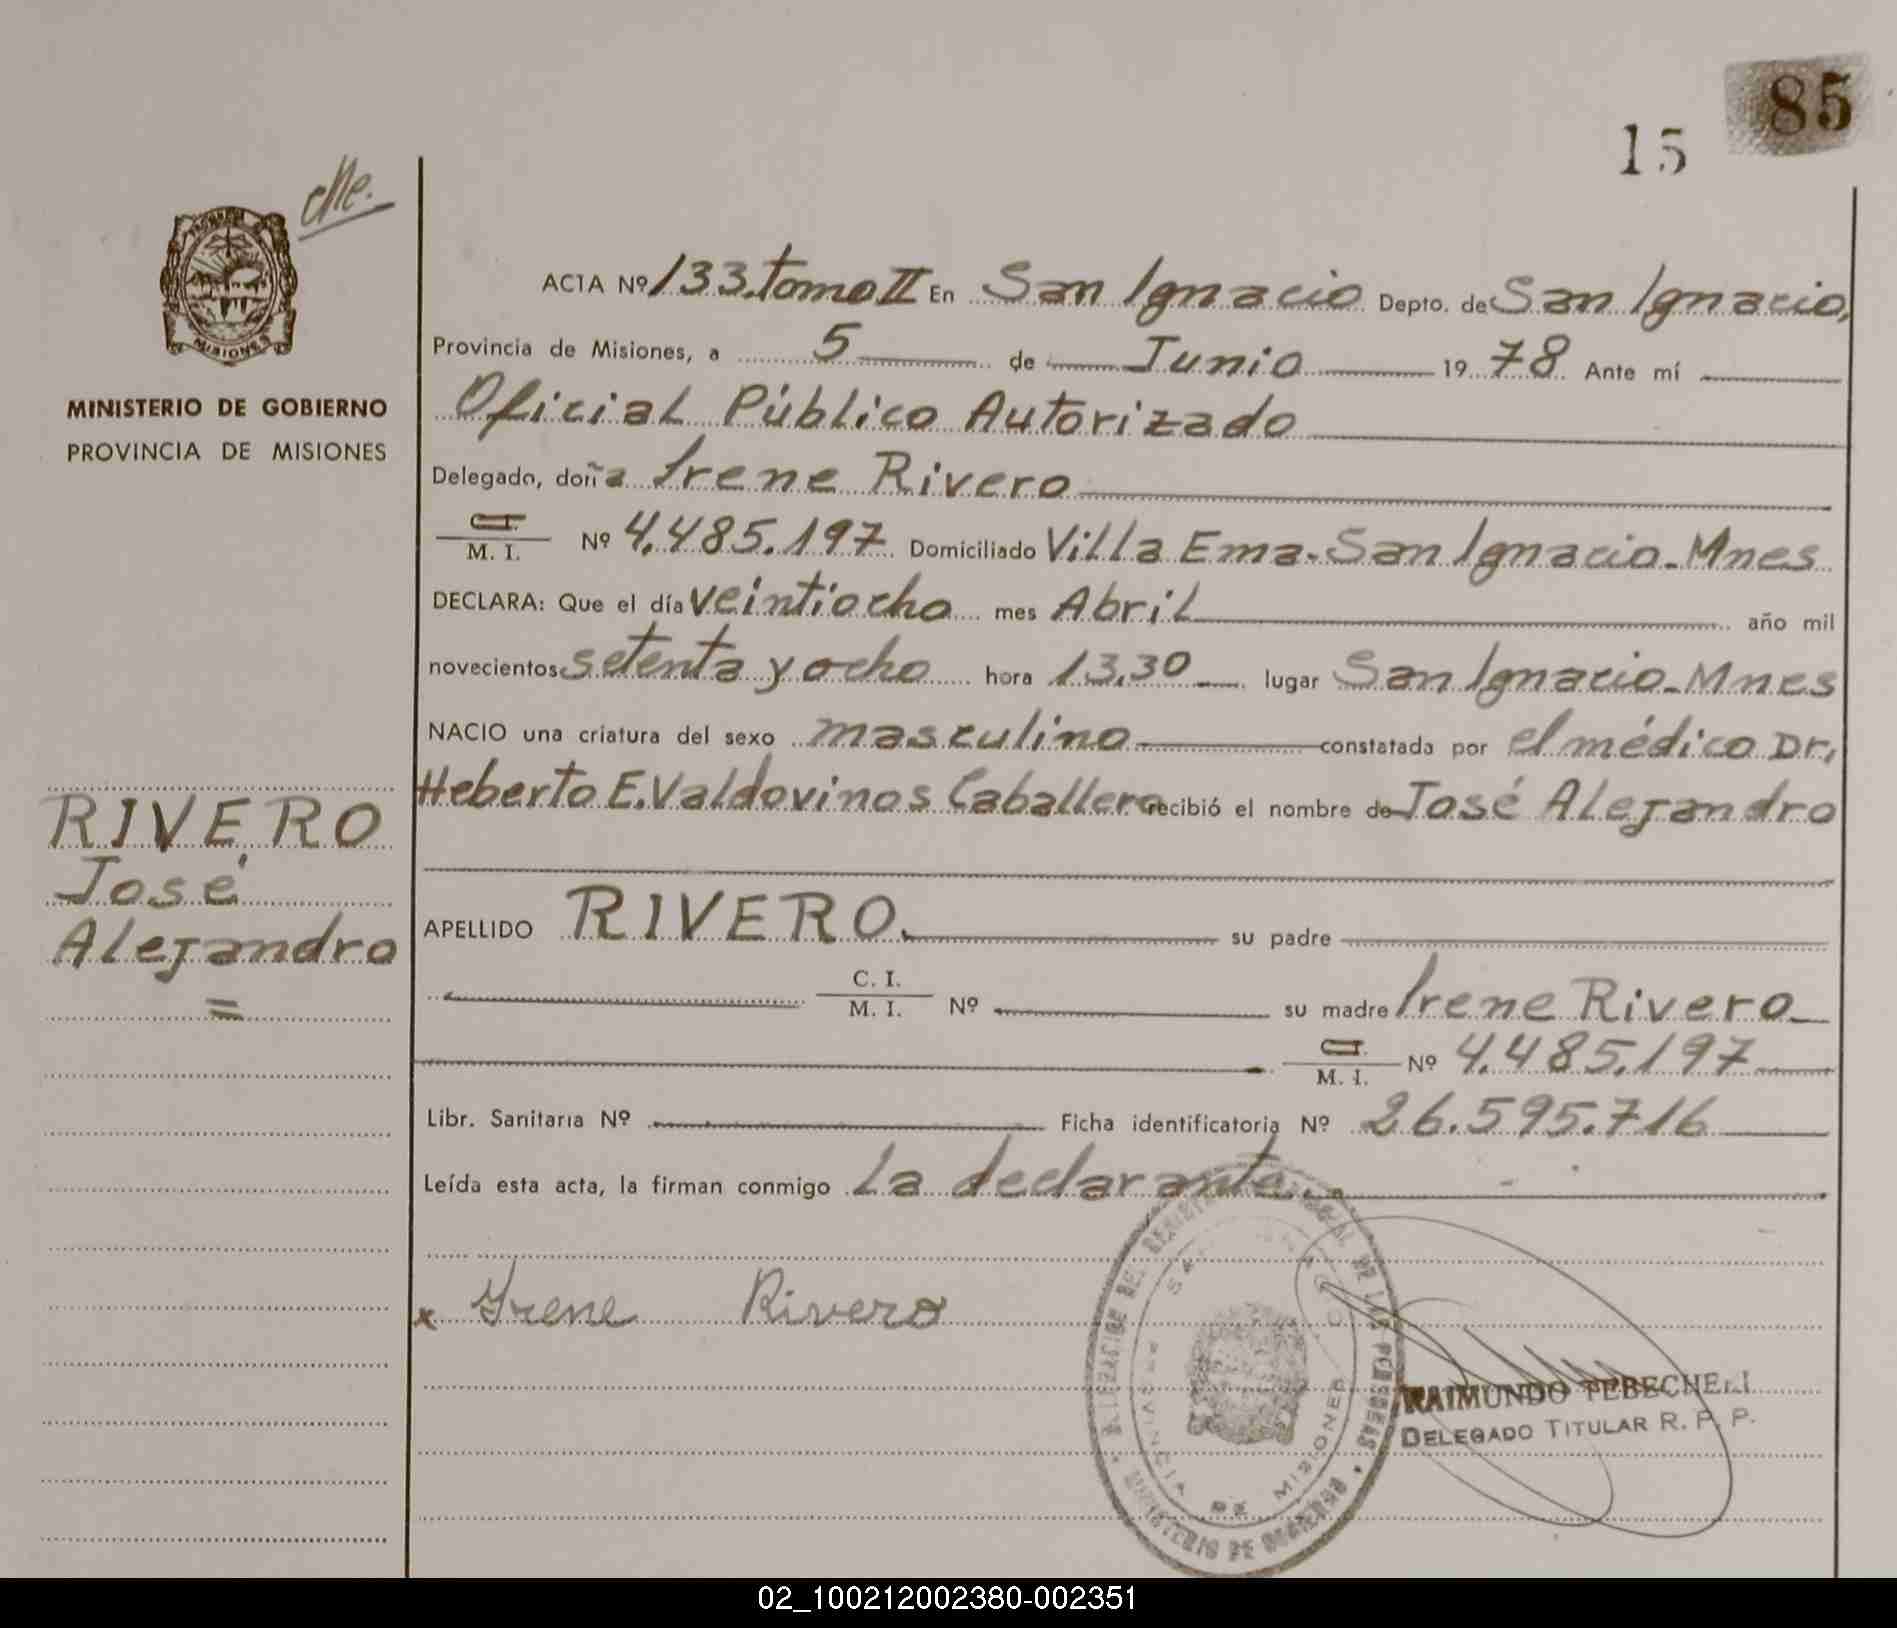 85
15
ACTA Nº 133. tomo II En San Ignacio Depto. de San Ignacio,
Provincia de Misiones, a 5 de Junio 1978 Ante mí
Oficial Público Autorizado
Delegado, doña Irene Rivero
C.I.
M. I. Nº 4.485.197 Domiciliado Villa Ema-San Ignacio-Mnes
DECLARA: Que el día veintiocho mes Abril año mil
novecientos setenta y ocho hora 13,30 lugar San Ignacio-Mnes
NACIO una criatura del sexo masculino constatada por el médico Dr,
Heberto E. Valdovinos Caballero recibió el nombre de José Alejandro
APELLIDO RIVERO. su padre
C. I.
M. I. Nº su madre Irene Rivero
C.I.
M. I. Nº 4.485.197
Libr. Sanitaria Nº Ficha identificatoria Nº 26.595.716
Leída esta acta, la firman conmigo La declarante.
x Irene Rivero
MISIONES
MINISTERIO DE GOBIERNO
PROVINCIA DE MISIONES
RIVERO
José
Alejandro
=
PROVINCIA DE MISIONES
MINISTERIO DE GOBIERNO
RAIMUNDO TEBECHERI
DELEGADO TITULAR R. P. P.
02_100212002380-002351